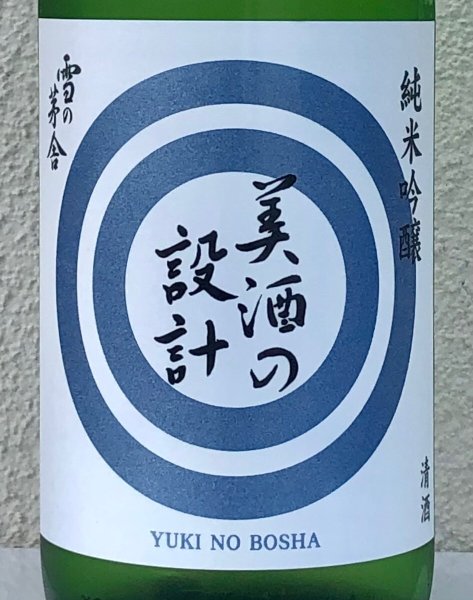 純米吟醸
雪の茅舎
美酒の
設計
清酒
YUKI NO BOSHA